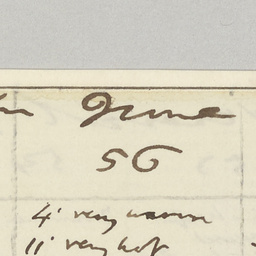 June
56
4' very warm
11' very hot